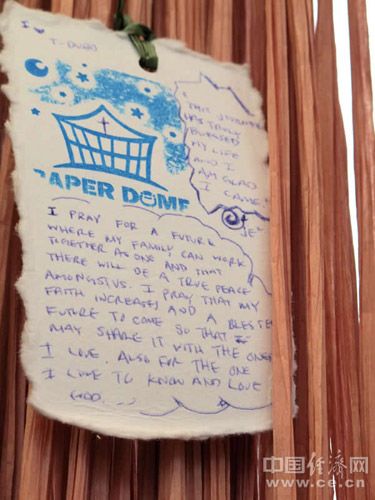 I ♥
THIS
HAS TRULY
BLESSED
MY LIFE
AND I
AM GLAD
I CAME!
PAPER DOME
I PRAY FOR A FUTURE
WHERE MY FAMILY CAN WORK
TOGETHER AS ONE AND THAT
THERE WILL BE A TRUE PEACE
AMONGST US. I PRAY THAT MY
FAITH INCREASES AND A BLESSED
FUTURE TO COME SO THAT I
MAY SHARE IT WITH THE ONES
I LOVE. ALSO FOR THE ONE
I LOVE TO KNOW AND LOVE
GOD....
中国经济网
www.ce.cn